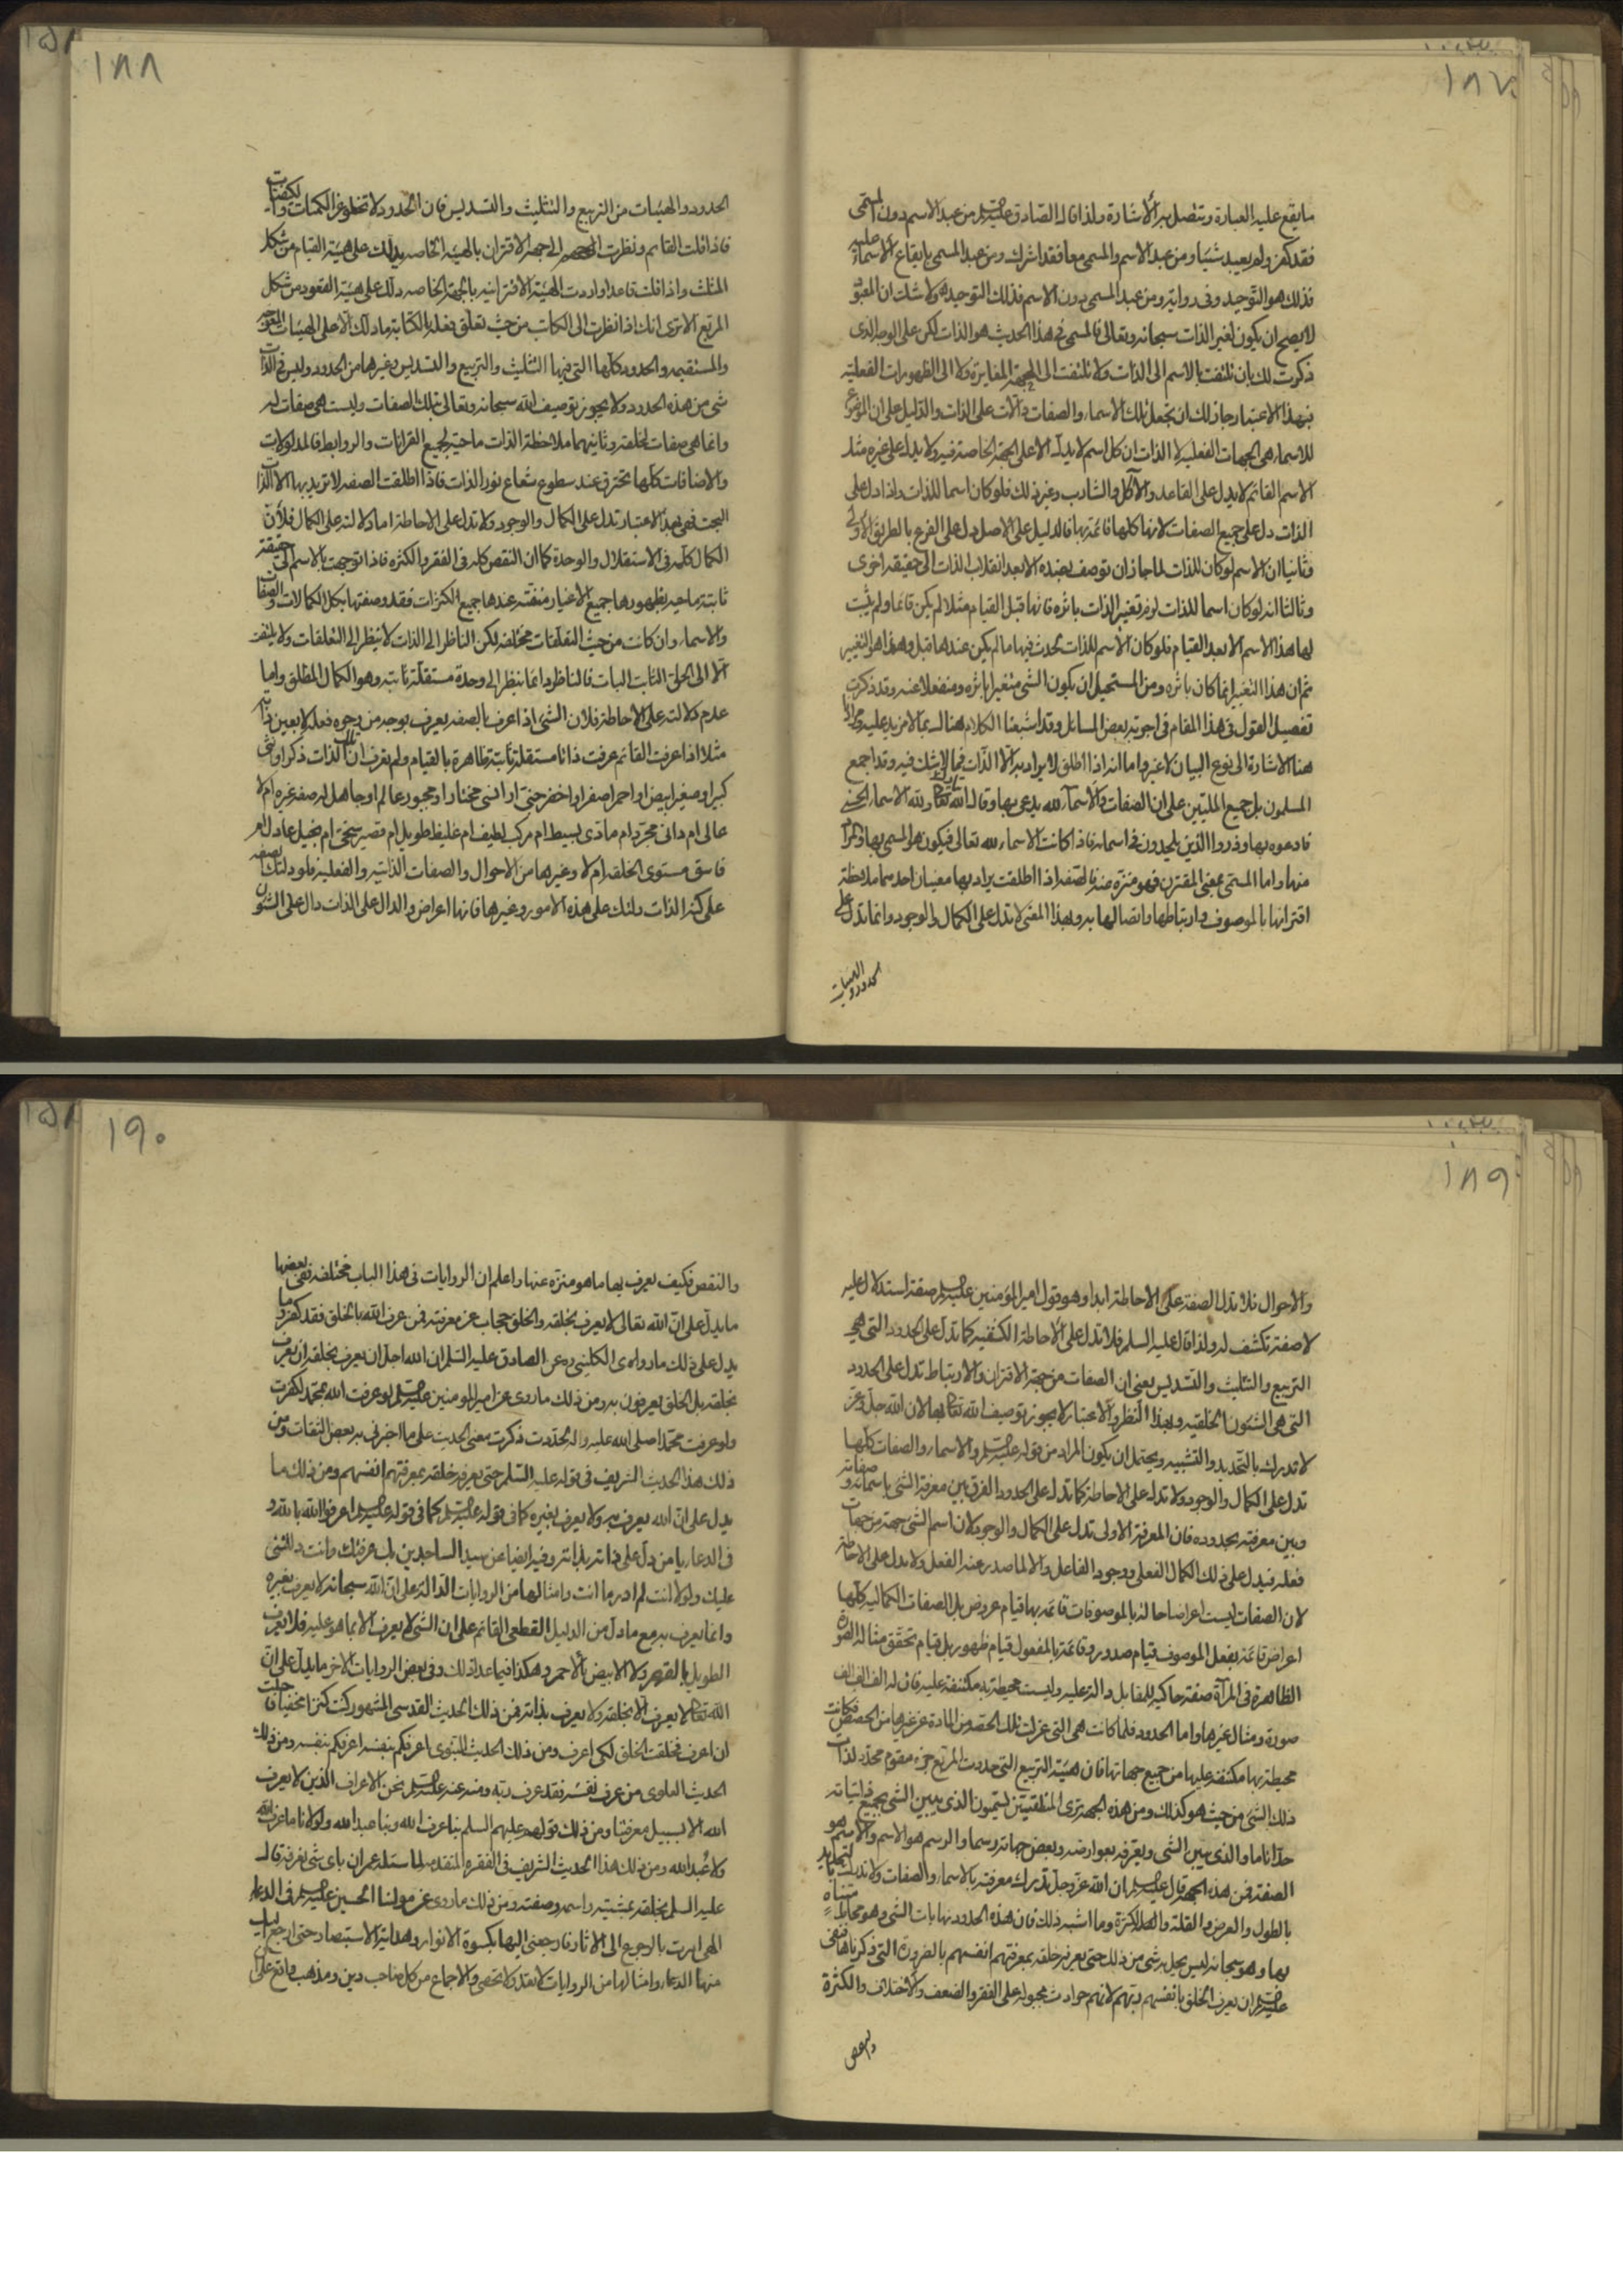 ١٨٧
ما يقع عليه العبارة ويتصل به الأشارة ولذا قال الصادق عليه السلم من عبد الاسم دون المسمى
فقد كفر ولم يعبد شيئا ومن عبد الاسم والمسمى معا فقد اشرك ومن عبد المسمى بايقاع الاسماء عليه
فذلك هو التوحيد وفى رواية ومن عبد المسمى دون الاسم فذلك التوحيد ولا شك ان المعبود
لا يصح ان يكون لغير الذات سبحانه وتعالى فالمسمى فى هذا الحديث هو الذات لكن على الوجه الذى
ذكرت لك بان تلتفت بالاسم الى الذات ولا تلتفت الى الجهة المغايرة ولا الى الظهورات الفعلية
فبهذا الاعتبار جاز لك ان تجعل تلك الاسماء والصفات دالات على الذات والدليل على ان الموضوع
للاسماء هى الجهات الفعلية لا الذات ان كل اسم لا يدل الا على الجهة الخاصة فيه ولا يدل على غيره مثلا
الاسم القائم لا يدل على القاعد والآكل والشارب وغير ذلك فلو كان اسما للذات واذا دل على
الذات دل على جميع الصفات لانها كلها قائمة بها فالدليل على الاصل دل على الفرع بالطريق الاولى
وثانيا ان الاسم لو كان للذات لما جاز ان توصف بضده الا بعد انقلاب الذات الى حقيقة اخرى
وثالثا انه لو كان اسما للذات لزم تغير الذات باثره فانها قبل القيام مثلا لم يكن قائما ولم يثبت
لها هذا الاسم الا بعد القيام فلو كان الاسم للذات تحدث فيها ما لم يكن عندها قبل وهذا هو التغيير
ثم ان هذا التغير انما كان باثره ومن المستحيل ان يكون الشئ متغيرا باثره ومنفعلا عنه وقد ذكرت
تفصيل القول فى هذا المقام فى اجوبة بعض المسائل وقد اشبعنا الكلام هنالك بما لا مزيد عليه ومرادنا
هنا الاشارة الى نوع البيان لا غير واما انه اذا اطلق لا يراد به الا الذات فمما لا شك فيه وقد اجمع
المسلمون بل جميع المليين على ان الصفات والاسماء لله يدعى بها وقال الله تعالى ولله الاسماء الحسنى
فادعوه بها وذروا الذين يلحدون فى اسمائه فاذا كانت الاسماء لله تعالى فيكون هو المسمى بها والمراد
منها واما المسمى بمعنى المقترن فهو منزه عنه فالصفة اذا اطلقت يراد بها معنيان احدهما ملاحظة
اقترانها بالموصوف وارتباطها واتصالها به وبهذا المعنى لا تدل على الكمال والوجود وانما تدل على
الحدود والهيئات
١٨٨
الحدود والهيئات من التربيع والتثليث والتسديس فان الحدود لا تخلو عن الكميات والكيفيات
فاذا قلت القائم ونظرت الى جهة الاقتران بالهيئة الخاصة يدلك على هيئة القيام من شكل
المثلث واذا قلت قاعد اواردت الهيئة الاقترانية بالجهة الخاصة دلك على هيئة القعود من شكل
المربع الا ترى انك اذا نظرت الى الكاتب من حيث تعلق فعله بالكتابة ما دلك الا على الهيئات المعوجة
والمستقيمة والحدود كلها التى فيها التثليث والتربيع والتسديس وغيرها من الحدود وليس فى الذات
شئ من هذه الحدود ولا يجوز توصيف الله سبحانه وتعالى بتلك الصفات وليست هى صفات له
وانما هى صفات لخلقه وثانيهما ملاحظة الذات ماحية لجميع القرانات والروابط فالمدلولات
والاضافات كلها تحترق عند سطوع شعاع نور الذات فاذا اطلقت الصفة لا تريد بها الا الذات
البحت فهى بهذا الاعتبار تدل على الكمال والوجود ولا تدل على الاحاطة اما دلالته على الكمال فلأن
الكمال كله فى الاستقلال والوحدة كما ان النقص كله فى الفقر والكثرة فاذا توجهت بالاسم الى حقيقة
ثابتة ماحية بظهورها جميع الاغيار منفية عندها جميع الكثرات فقد وصفتها بكل الكمالات والصفات
والاسماء وان كانت من حيث التعلقات مختلفة لكن الناظر الى الذات لا ينظر الى التعلقات ولا يلتفت
الا الى الحق الثابت البات فالناظر دائما ينظر الى وحدة مستقلة ثابتة وهو الكمال المطلق واما
عدم دلالته على الاحاطة فلان الشئ اذا عرف بالصفة يعرف بوجه من وجوه فعله لا بعين ذاته
مثلا اذا عرفت القائم عرفت ذاتا مستقلة ثابتة ظاهرة بالقيام ولم تعرف ان تلك الذات ذكر او انثى
كبير او صغير ابيض او احمر اصفر او اخضر جنى او انسى مختار او مجبور عالم او جاهل له صفة غيره ام لا
عالى ام دانى مجرد ام مادى بسيط ام مركب لطيف ام غليظ طويل ام قصير سخى ام بخيل عادل ام
فاسق مستوى الخلقة ام لا وغيرها من الاحوال والصفات الذاتية والفعلية فلو دلتك الصفة
على كنه الذات دلتك على هذه الامور وغيرها فانها اعراض والدال على الذات دال على الشئون
١٨٩
والاحوال فلا تدل الصفة على الاحاطة ابدا وهو قول امير المؤمنين عليه السلم صفة استدلال عليه
لا صفة تكشف له ولذا قال عليه السلم فلا تدل على الاحاطة الكشفية كما تدل على الحدود التى هى
التربيع والتثليث والتسديس يعنى ان الصفات من جهة الاقتران والارتباط تدل على الحدود
التى هى الشئون الخلقية وبهذا النظر والاعتبار لا يجوز توصيف الله تعالى بها لان الله جل وعز
لا تدرك بالتحديد والتشبيه ويحتمل ان يكون المراد من قوله عليه السلم والاسماء والصفات كلها
تدل على الكمال والوجود ولا تدل على الاحاطة كما تدل على الحدود الفرق بين معرفة الشئ باسمائه وصفاته
وبين معرفته بحدوده فان المعرفة الاولى تدل على الكمال والوجود لان اسم الشئ جهة من جهات
فعله فيدل على ذلك الكمال الفعلى ووجود الفاعل والا لما صدر عنه الفعل ولا يدل على الاحاطة
لان الصفات ليست اعراضا حالة بالموصوفات قائمة بها قيام عروض بل الصفات الكمالية كلها
اعراض قائمة بفعل الموصوف قيام صدور وقائمة بالمفعول قيام ظهور بل قيام تحقق مثاله الصورة
الظاهرة فى المرآة صفة حاكية للمقابل دالة عليه وليست محيطة به مكتنفة عليه فان له الف الف الف
صورة ومثال غيرها واما الحدود فلما كانت هى التى عزلت تلك الحصة من المادة عن غيرها من الحصص فكانت
محيطة بها مكتنفة عليها من جميع جهاتها فان هيئة التربيع التى حددت المربع جزء مقوم محدد لذات
ذلك الشئ من حيث هو كذلك ومن هذه الجهة ترى المنطقيين يسمون الذى يبين الشئ بجميع ذاتياته
حدا تاما والذى يبين الشئ ويعرفه بعوارضه وبعض جهاته رسما والرسم هو الاسم والاسم هو
الصفة فمن هذه الجهة قال عليه السلم ان الله عز وجل تدرك معرفته بالاسماء والصفات ولا تدرك بالتحديد
بالطول والعرض والقلة والكثرة وما اشبه ذلك فان هذه الحدود نهايات الشئ وهو محاط متناه
بها وهو سبحانه ليس يحل به شئ من ذلك حتى يعرفه خلقه بمعرفتهم انفسهم بالضرورة التى ذكرناها فنفى
عليه السلم ان يعرف الخلق بانفسهم ربهم لانهم حوادث مجبولة على الفقر والضعف والاختلاف والكثرة
والنقص
١٩٠
والنقص فكيف يعرف بها ما هو منزه عنها واعلم ان الروايات فى هذا الباب مختلفة ففى بعضها
ما يدل على ان الله تعالى لا يعرف بخلقه والخلق حجاب عن معرفته فمن عرف الله بالخلق فقد كفر وما
يدل على ذلك ما رواه فى الكلينى عن الصادق عليه السلم ان الله اجل ان يعرف بخلقه ان يعرف
بخلقه بل الخلق يعرفون به ومن ذلك ما روى عن امير المومنين عليه السلم لو عرفت الله بمحمد لكفرت
ولو عرفت محمدا صلى الله عليه واله لحددت ذكرت معنى الحديث على ما اخبرنى به بعض الثقات ومن
ذلك هذا الحديث الشريف فى قوله عليه السلم حتى يعرفه خلقه بمعرفتهم انفسهم ومن ذلك ما
يدل على ان الله يعرف به ولا يعرف بغيره كما فى قوله عليه السلم اعرفوا الله بالله و
فى الدعاء يا من دل على ذاته بذاته وفيه ايضا عن سيد الساجدين بك عرفتك وانت دللتنى
عليك ولولا انت لم ادر ما انت وامثالها من الروايات الدالة على ان الله سبحانه لا يعرف بغيره
وانما يعرف به مع ما دل من الدليل القطعى القائم على ان الشئ لا يعرف الا بما هو عليه فلا يعرف
الطويل بالقصير ولا الابيض بالاحمر وهكذا فيما عدا ذلك وفى بعض الروايات الاخر ما يدل على ان
الله تعالى لا يعرف الا بخلقه ولا يعرف بذاته فمن ذلك الحديث القدسى المشهور كنت كنزا مخفيا فاحببت
ان اعرف فخلقت الخلق لكى اعرف ومن ذلك الحديث النبوى اعرفكم بنفسه اعرفكم بنفسه ومن ذلك
الحديث العلوى من عرف نفسه فقد عرف ربه ومنه عنه عليه السلم نحن الاعراف الذين لا يعرف
الله الا بسبيل معرفتنا ومن ذلك قولهم عليهم السلم بنا عرف الله وبنا عبد الله ولولانا ما عرف الله
ولا عُبد الله ومن ذلك هذا الحديث الشريف فى الفقرة المتقدمة لما سئله عمران باى شئ نعرفه قال
عليه السلم بخلقه بمشيته واسمه وصفته ومن ذلك ما روى عن مولنا الحسين عليه السلم فى الدعاء
الهى امرت بالرجوع الى الاثار فارجعنى اليها بكسوة الانوار وهداية الاستبصار حتى ارجع اليك
منها الدعاء وامثالها من الروايات لا تعد ولا تحصى والاجماع من كل صاحب دين ومذهب واقع على